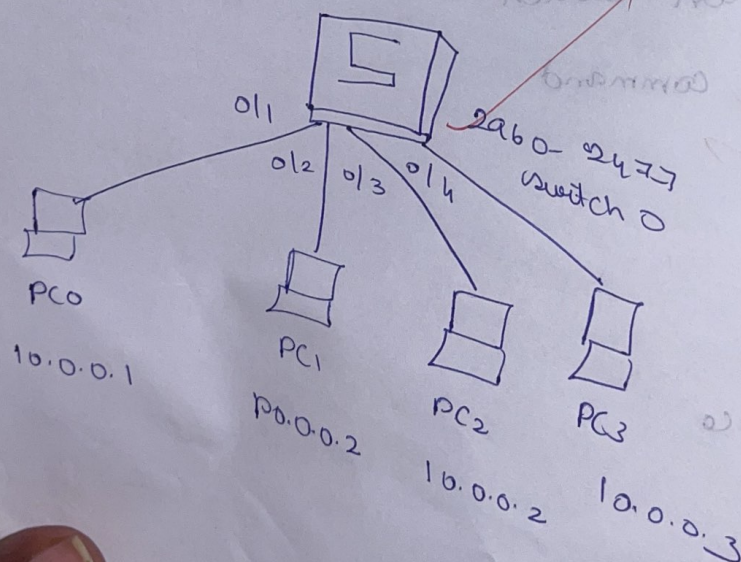 S
0/1
0/2
0/3
0/4
2960-24TT
switch 0
PC0
10.0.0.1
PC1
10.0.0.2
PC2
10.0.0.2
PC3
10.0.0.3